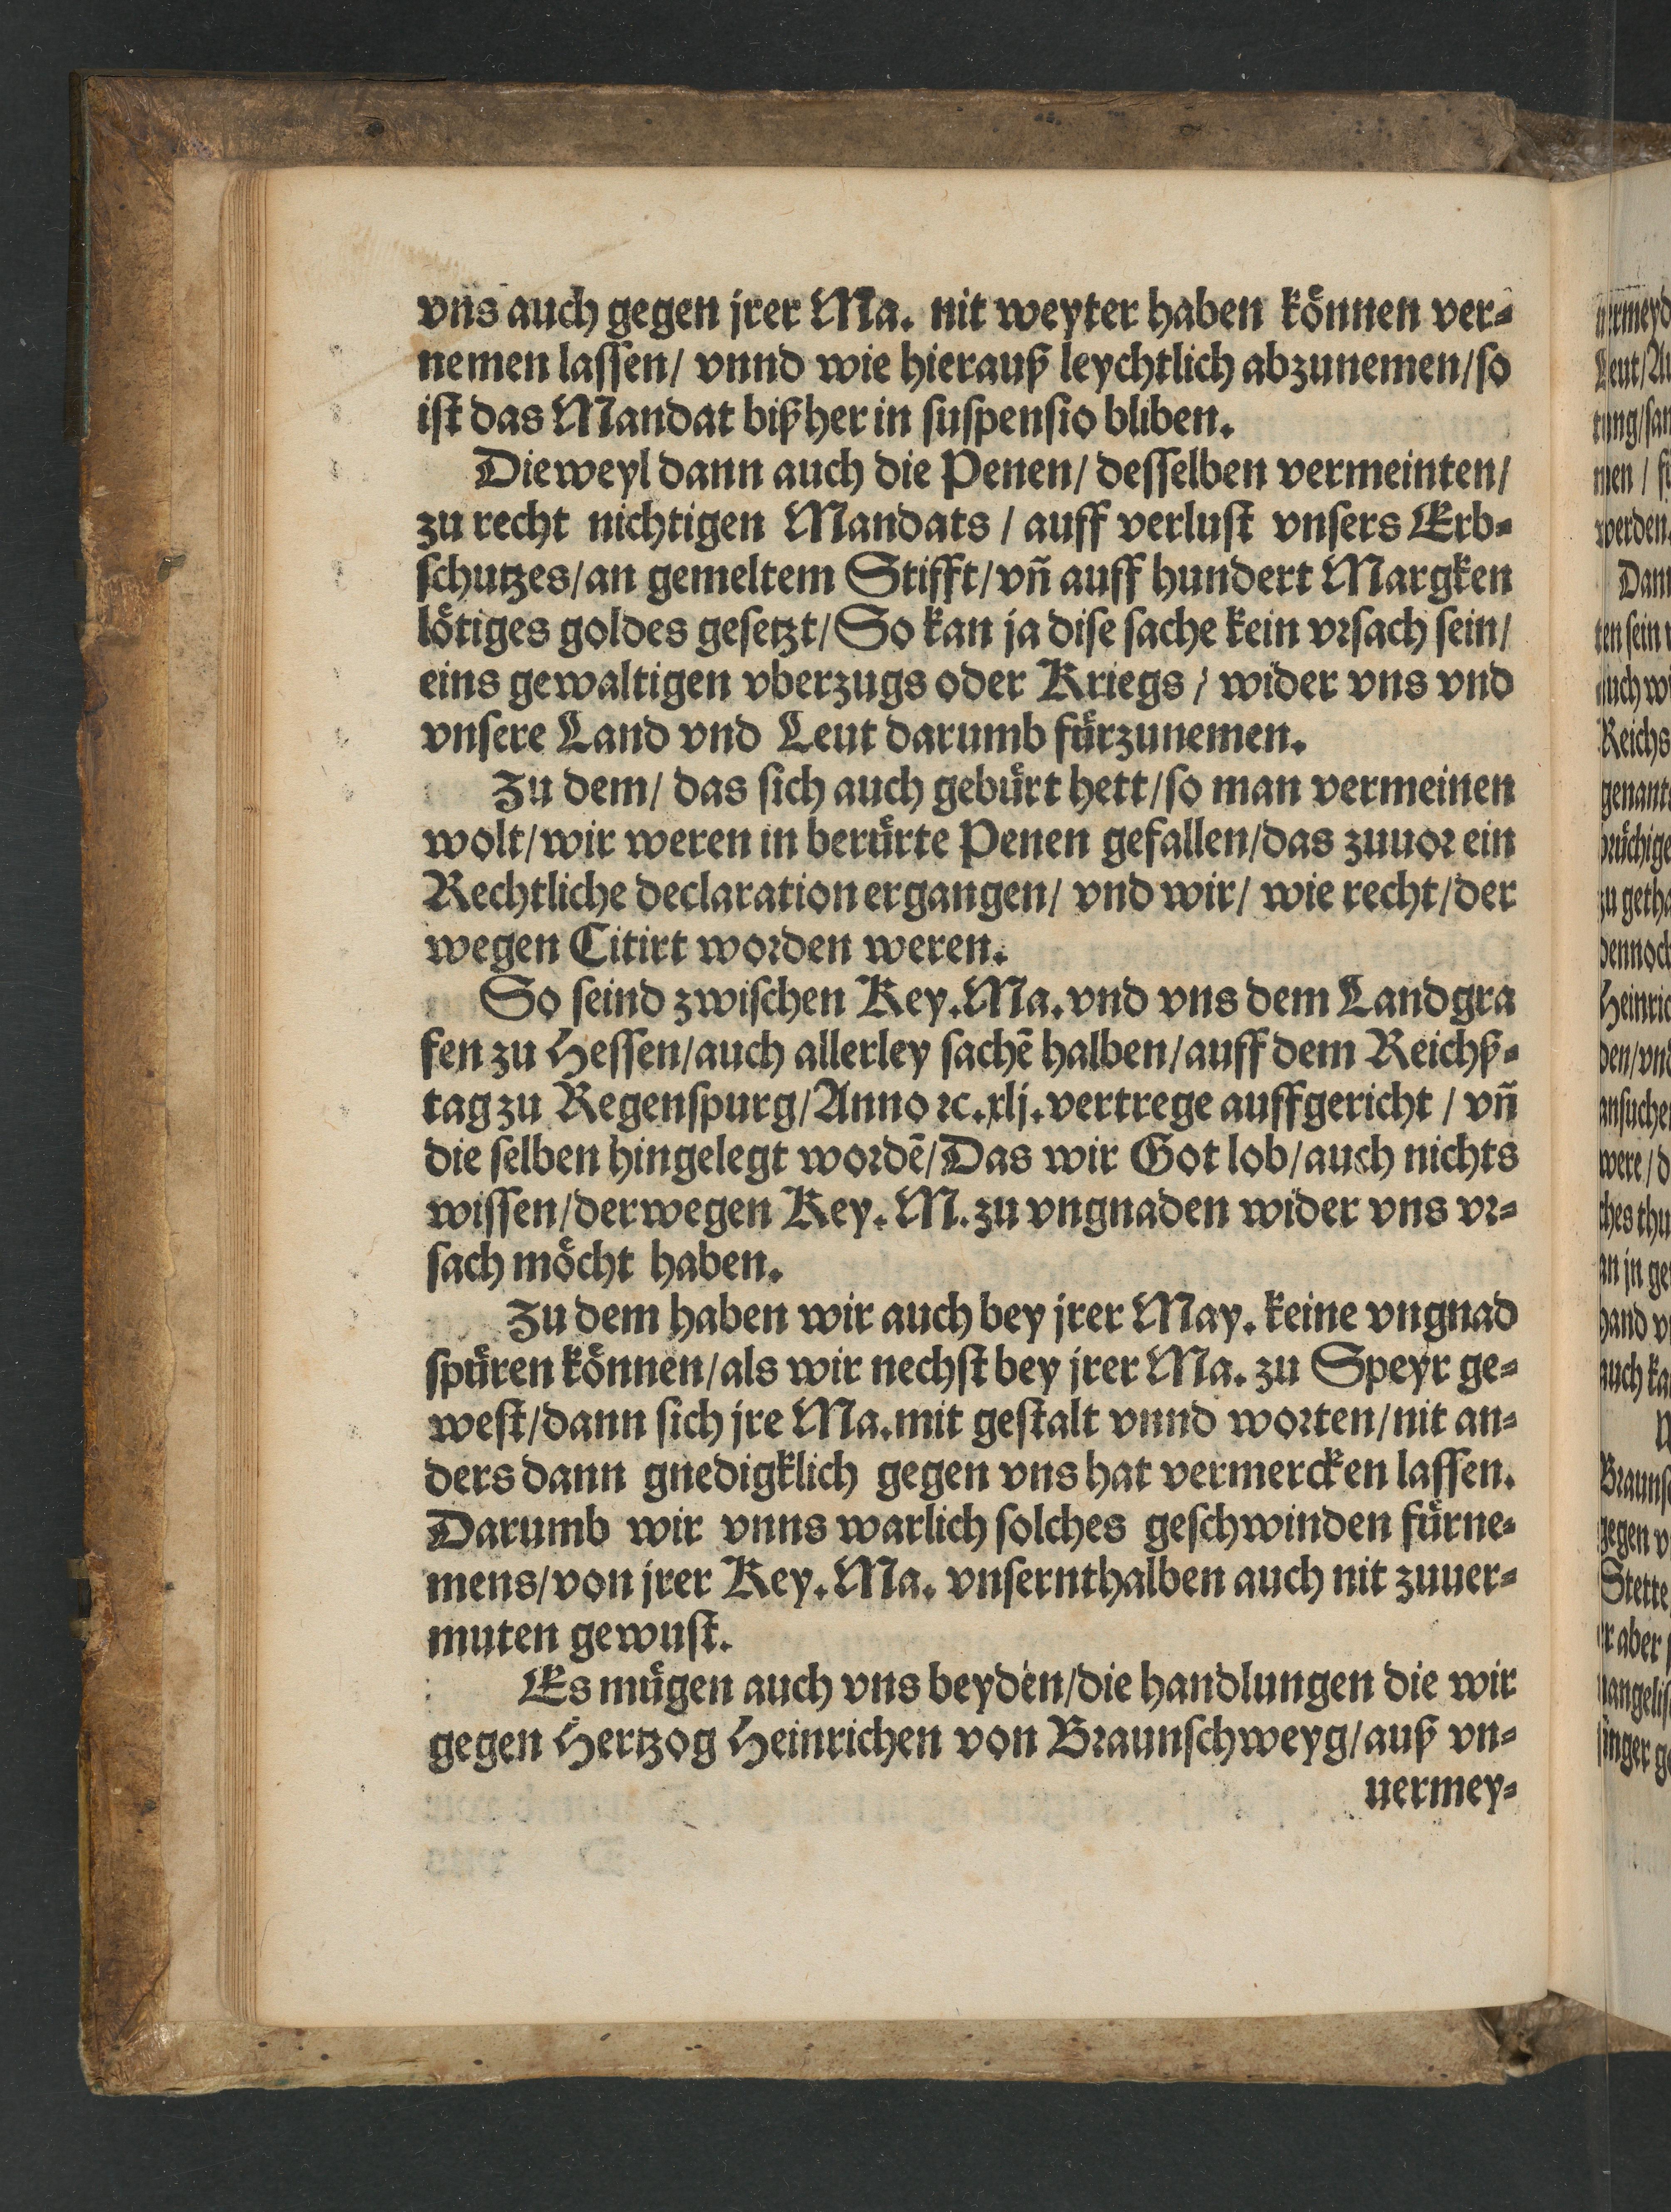 vns auch gegen jrer Ma. nit weyter haben koͤnnen ver⸗
nemen laſſen/ vnnd wie hierauß leychtlich abzunemen/ſo
iſt das Mandat bißher in ſuſpenſio bliben.
Dieweyl dann auch die Penen/ deſſelben vermeinten/
zu recht nichtigen Mandats / auff verluſt vnſers Erb⸗
ſchutzes/an gemeltem Stifft/vñ auff hundert Margken
loͤtiges goldes geſetzt/So kan ja diſe ſache kein vrſach ſein/
eins gewaltigen vberzugs oder Kriegs / wider vns vnd
vnſere Land vnd Leut darumb fuͤrzunemen.
Zu dem/ das ſich auch gebuͤrt hett/ſo man vermeinen
wolt/wir weren in beruͤrte Penen gefallen/das zuuor ein
Rechtliche declaration ergangen/ vnd wir/ wie recht/der
wegen Citirt worden weren.
So ſeind zwiſchen Key.Ma.vnd vns dem Landgra
fen zu Heſſen/auch allerley ſachẽ halben/auff dem Reichß⸗
tag zu Regenſpurg/Anno ꝛc.xlj.vertrege auffgericht / vñ
die ſelben hingelegt wordẽ/Das wir Got lob/auch nichts
wiſſen/derwegen Key.M.zu vngnaden wider vns vr⸗
ſach moͤcht haben.
Zu dem haben wir auch bey jrer May. keine vngnad
ſpuͤren koͤnnen/als wir nechſt bey jrer Ma. zu Speyr ge⸗
weſt/dann ſich jre Ma.mit geſtalt vnnd worten/nit an⸗
ders dann gnedigklich gegen vns hat vermercken laſſen.
Darumb wir vnns warlich ſolches geſchwinden fuͤrne⸗
mens/von jrer Key.Ma. vnſernthalben auch nit zuuer⸗
muten gewuſt.
Es muͤgen auch vns beyden/die handlungen die wir
gegen Hertzog Heinrichen von Braunſchweyg/auß vn⸗
uermey⸗